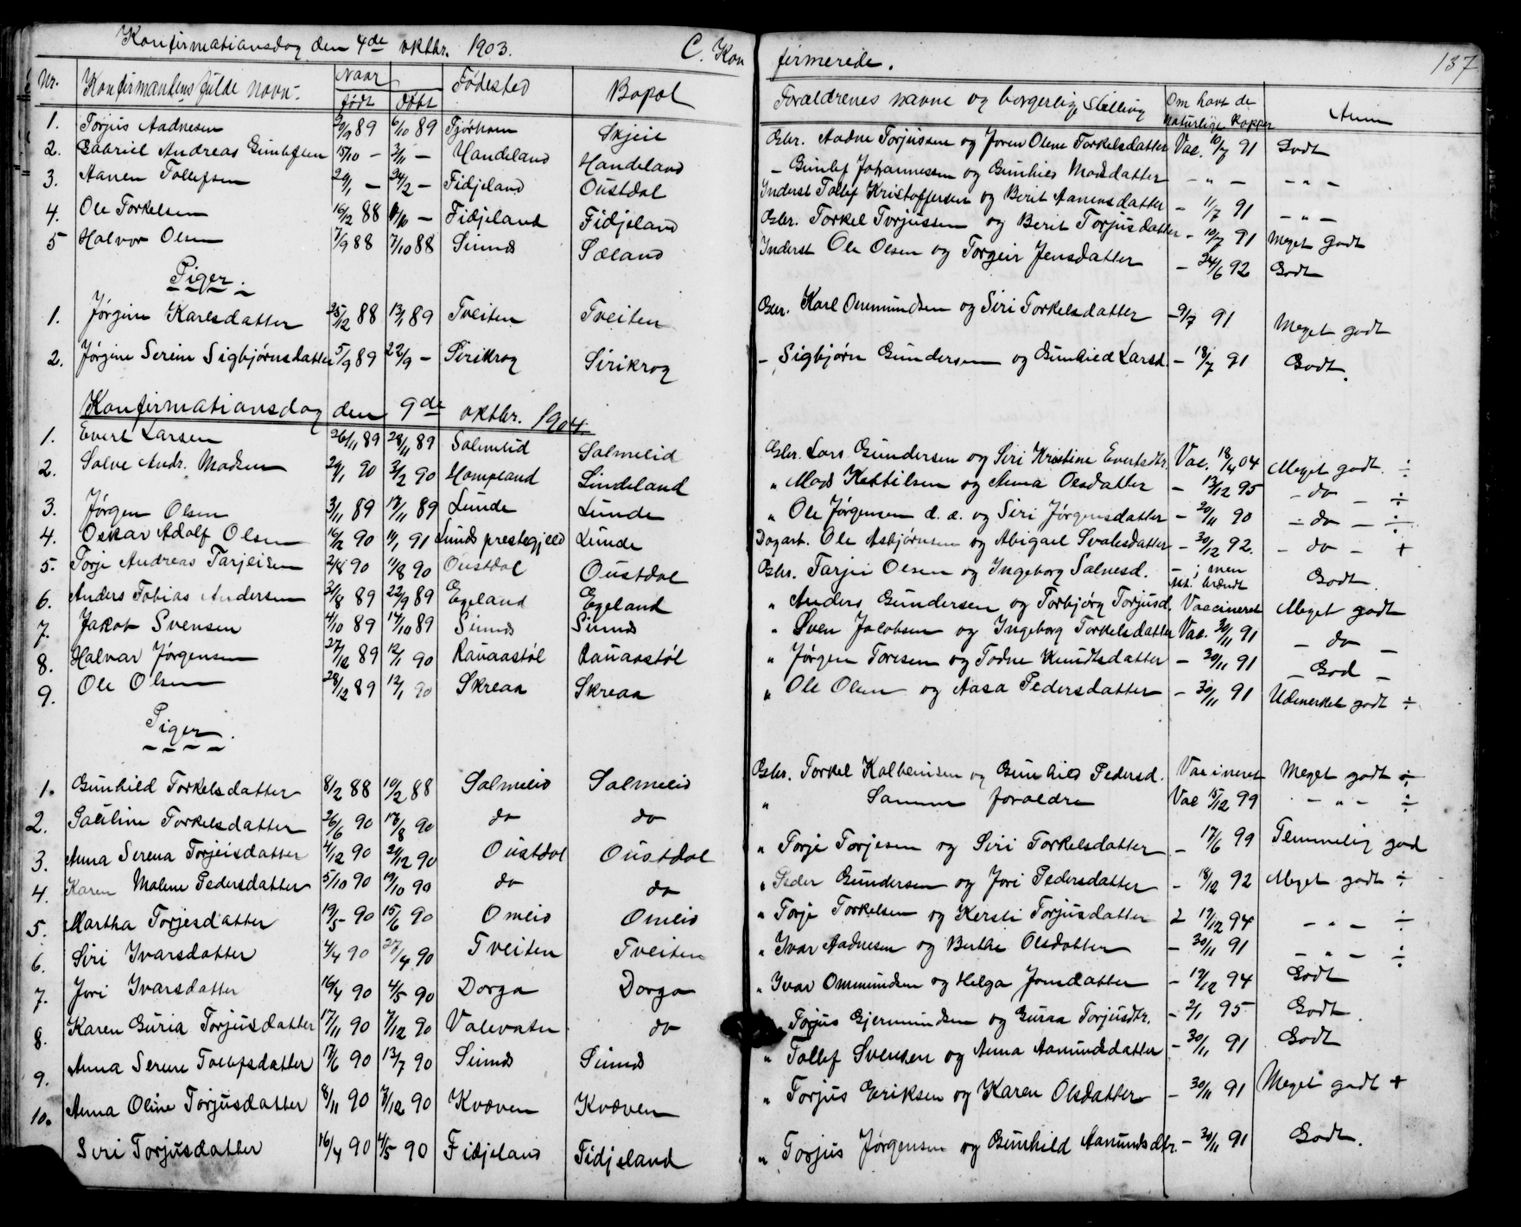 Konfirmationsdag den 4de oktbr. 1903. C. Konfirmerede. 137
Nr. Konfirmantens fulde navn. Naar født Døbt Fødested Bopæl Forældrenes navne og borgerlige Stilling Om havt de naturlige Kopper Anm
1. Torjus Aadnesen 89 6/10 89 Tjørhom Skjeie Gbr. Aadne Torjussen og Joren Oline Torkelsdatter Vac. 10/7 91 Godt
2. Gabriel Andreas Gunlefsen 15/10 - 3/11 - Handeland Handeland - Gunlef Johannessen og Gunhild Madsdatter - " - - " -
3. Aanen Tollefsen 29/1 - 24/2 - Fidjeland Øustdal Inderst Tollef Kristoffersen og Berit Aanensdatter - 11/7 91 - " -
4. Ole Torkelsen 16/2 88 - Fidjeland Fidjeland Gbr. Torkel Torjussen og Berit Torjusdatter - 10/7 91 Meget godt
5 Halvor Olsen 7/9 88 7/10 88 Suinds Sæland Inderst Ole Olsen og Torgeir Jensdatter - 24/6 92 Godt
Piger.
1. Jørgine Karlsdatter 25/12 88 13/1 89 Tveiten Tveiten Gbr. Karl Ommundsen og Siri Torkelsdatter - 9/7 91 Meget godt
2. Jørgine Serine Sigbjørnsdatter 5/9 89 22/9 - Sirikrog Sirikrog - Sigbjørn Gundersen og Gunhild Larsd. - 18/7 91 Godt.
Konfirmationsdag den 9de oktbr. 1904.
1. Evert Larsen 26/11 89 28/11 89 Salmelid Salmelid Gbr. Lars Gundersen og Siri Kristine Evertsdtr. Vac. 18/4 04 Meget godt. ÷
2. Salve Andr. Madsen 29/1 90 3/2 90 Hompland Lindeland " Mads Kettilsen og Anna Olsdatter - 13/12 95 - do - ÷
3. Jørgen Olsen 3/11 89 17/11 89 Lunde Lunde " Ole Jørgensen d. æ. og Siri Jørgensdatter - 20/11 90 - do - ÷
4. Oskar Adolf Olsen 16/12 90 11/1 91 Lunds prestegjeld Lunde Dagarb. Ole Asbjørnsen og Abigael Svalesdatter - 30/12 92. - do - +
5. Torje Andreas Tarjeisen 90 90 Øustdal Øustdal Gbr. Tarjei Olsen og Ingeborg Salvesd. - ; men Godt
6. Anders Tobias Andersen 31/8 89 22/9 89 Egeland Egeland " Anders Gundersen og Torbjørg Torjusd. Vaccineret Meget godt
7. Jakob Svensen 4/10 89 17/10 89 Suinds Suinds " Sven Jacobsen og Ingeborg Torkelsdatter Vac. 30/11 91 - do -
8. Halvar Jørgensen 27/12 89 12/1 90 Rauaastøl Rauaastøl " Jørgen Toresen og Todne Knudtsdatter - 30/11 91 - God -
9. Ole Olsen 28/12 89 12/1 90 Skreaa Skreaa " Ole Olsen og Aasa Pedersdatter - 30/11 91 Udmerket godt ÷
Piger.
1. Gunhild Torkelsdatter 8/2 88 19/2 88 Salmelid Salmelid Gbr. Torkel Kolbeinsen og Gunhild Pedersd. Vaccineret Meget godt ÷
2. Torkelsdatter 26/6 90 17/8 90 do do " Samme forældre Vac 15/12 99 - " - ÷
3. Anna Serena Torjeisdatter 4/12 90 21/12 90 Øustdal Øustdal " Torje Torjesen og Siri Torkelsdatter - 17/6 99 Temmelig god
4. Karen Malene Pedersdatter 5/10 90 19/10 90 do do " Peder Gundersen og Jori Pedersdatter - 18/12 92 Meget godt ÷
5. Martha Torjesdatter 19/5 90 15/6 90 Omlid Omlid " Torje Torkelsen og Kersti Torjusdatter 2 19/12 94 - " - ÷
6. Siri Ivarsdatter 4/4 90 27/4 90 Tveiten Tveiten " Ivar Aadnesen og Berthe Olsdatter - 30/11 91 - " - ÷
7. Jori Ivarsdatter 16/4 90 4/5 90 Dorga Dorga " Ivar Ommundsen og Helga Jonsdatter - 19/12 94 Godt
8. Karen Guria Torjusdatter 17/11 90 7/12 90 Valevatn do Torjus Gjermundsen og Guraa Torjusdtr. - 2/1 95 Godt.
9. Anna Serene Tollefsdatter 17/6 90 13/7 90 Suinds Suinds " Tollef Svensen og Anna Aanundsdatter - 30/11 91 Godt
10. Anna Oline Torjusdatter 8/11 90 7/12 90 Kvæven Kvæven " Torjus Eriksen og Karen Olsdatter - 30/11 91 Meget godt +
Siri Torjusdatter 16/4 90 4/5 90 Fidjeland Fidjeland " Torjus Jørgensen og Gunhild Aanundsdtr. - 30/11 91 Godt.